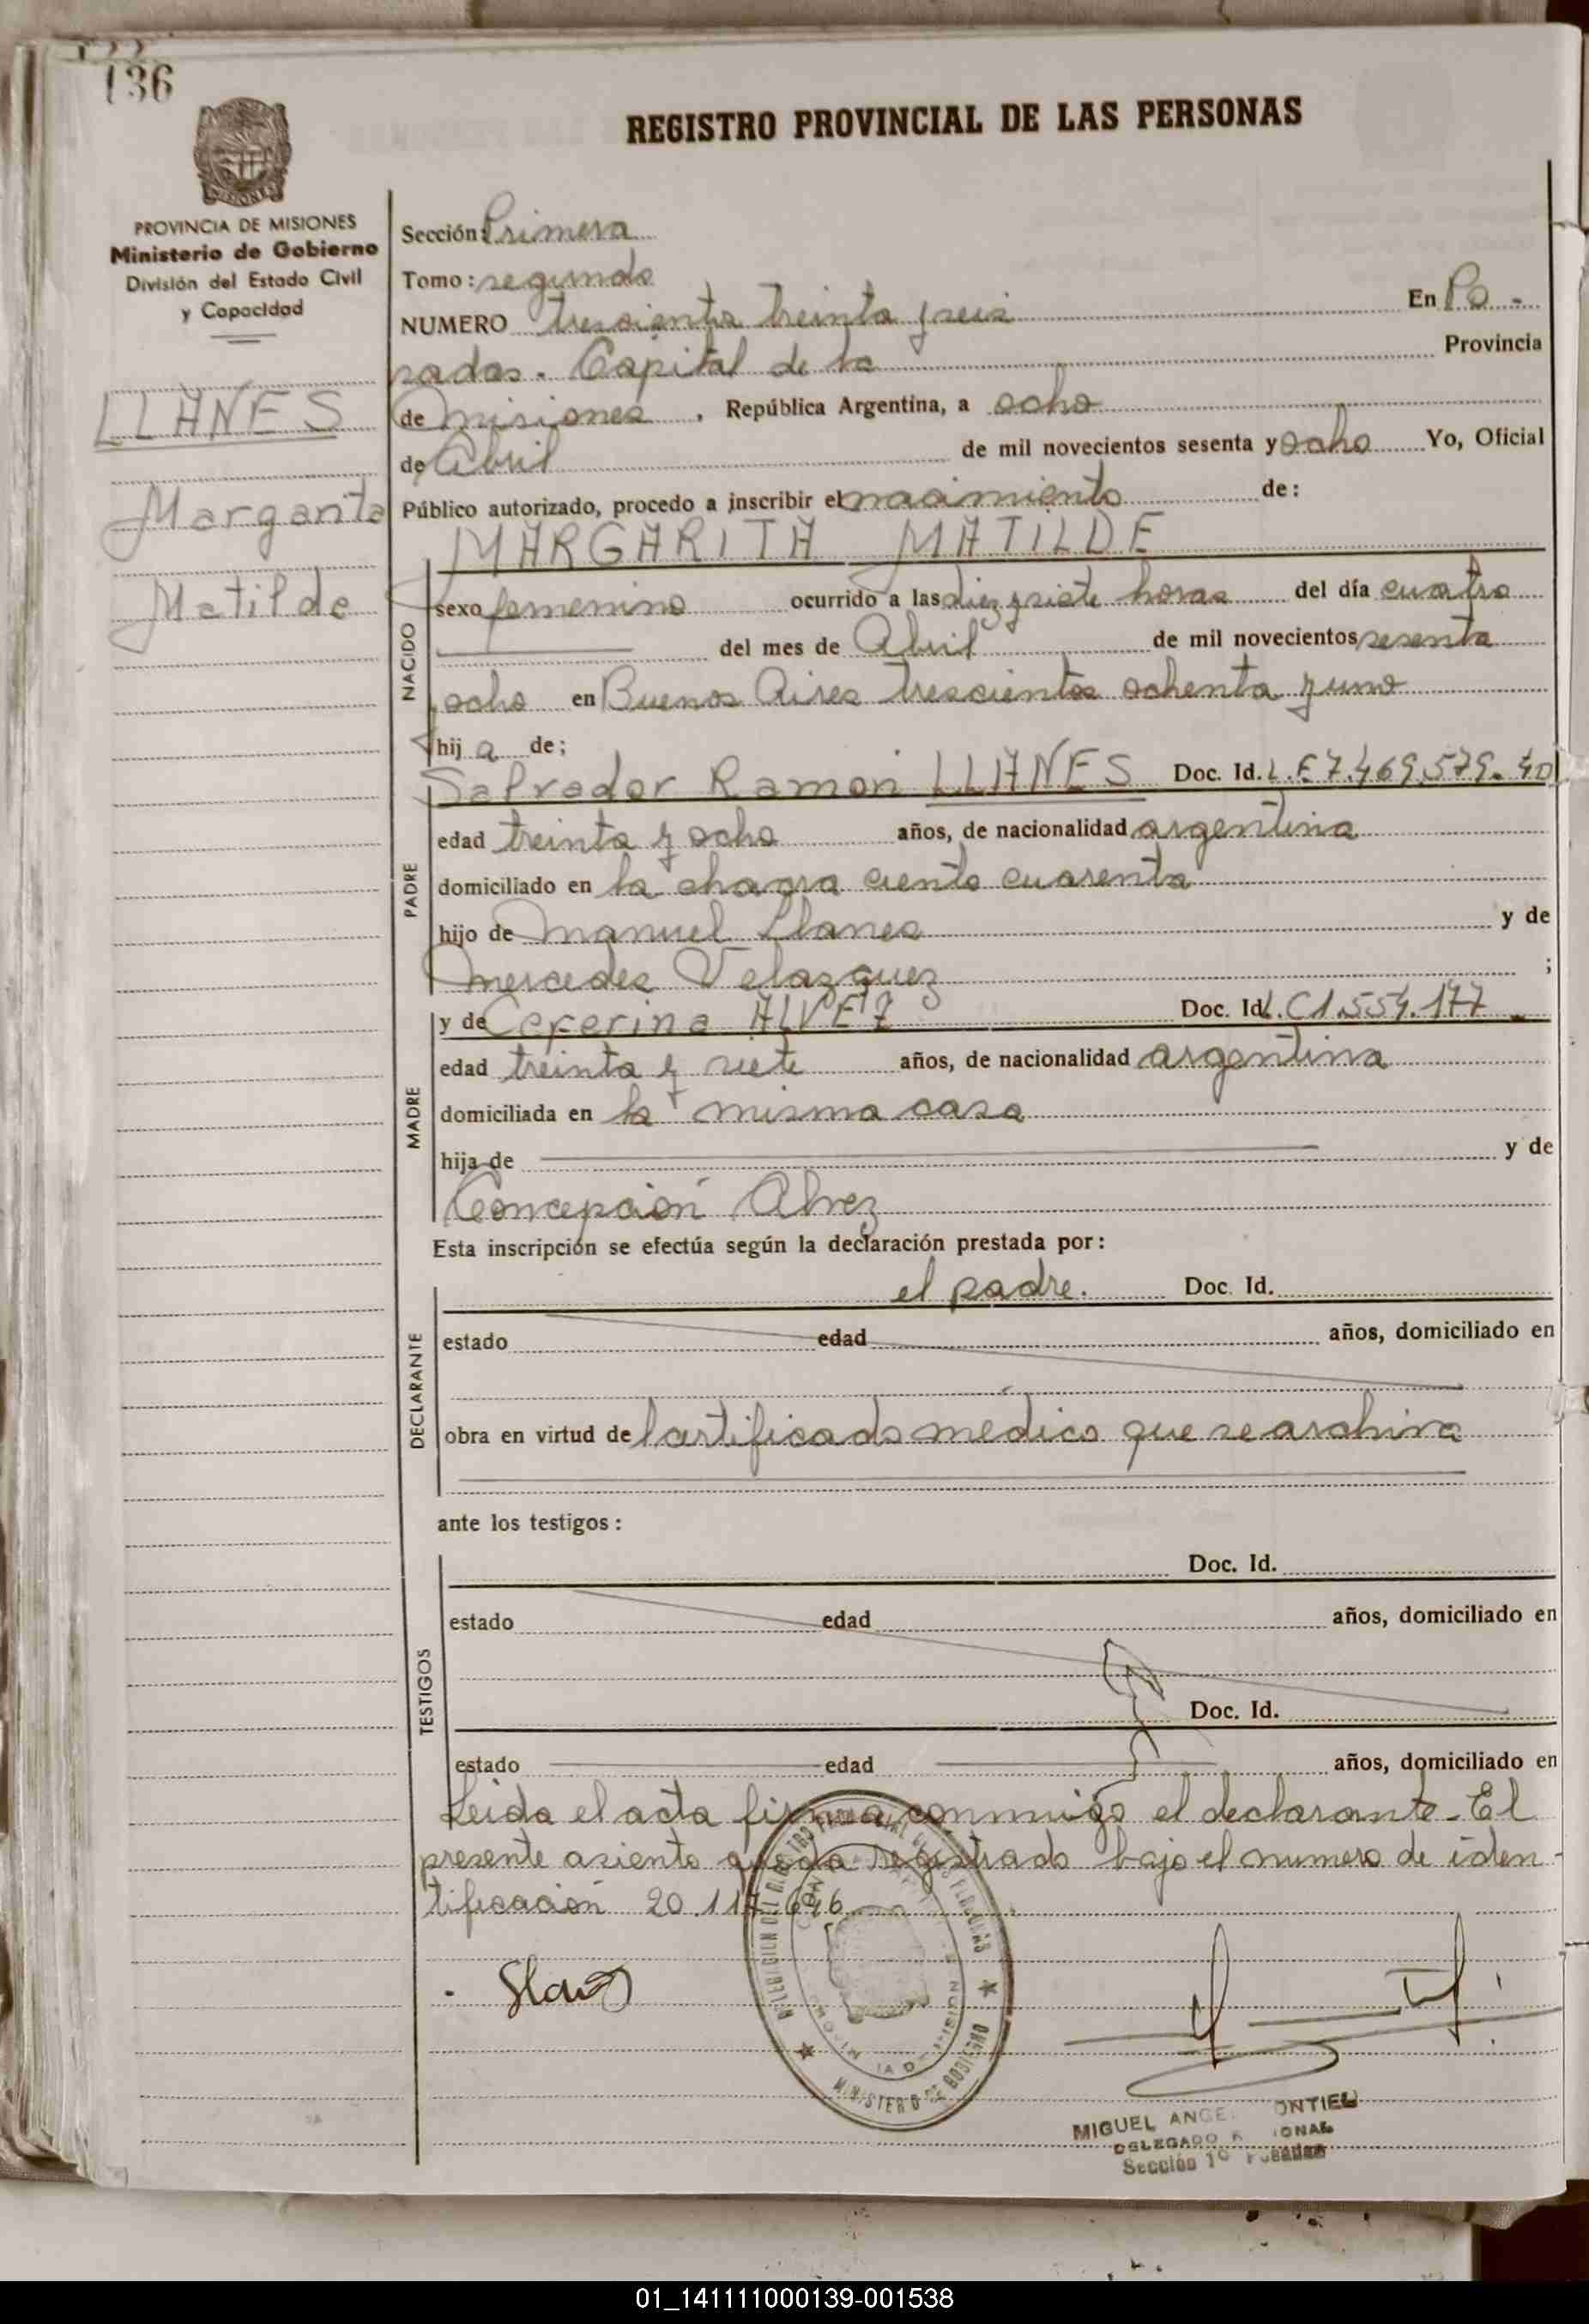 136
REGISTRO PROVINCIAL DE LAS PERSONAS
MISIONES
PROVINCIA DE MISIONES
Ministerio de Gobierno
División del Estado Civil
y Capacidad
LLANES
Margarita
Matilde
Sección: Primera
Tomo: segundo
NUMERO trescientos treinta y seis En Po-
sadas. Capital de la Provincia
de Misiones, República Argentina, a ocho
de Abril de mil novecientos sesenta y ocho Yo, Oficial
Público autorizado, procedo a inscribir el nacimiento de:
MARGARITA MATILDE
NACIDO
sexo femenino ocurrido a las diez y siete horas del día cuatro
del mes de Abril de mil novecientos sesenta
y ocho en Buenos Aires trescientos ochenta y uno
hija de;
PADRE
Salvador Ramon LLANES Doc. Id. L.E 7.469.579. 40
edad treinta y ocho años, de nacionalidad argentina
domiciliado en la chacra ciento cuarenta
hijo de Manuel Llanes y de
Mercedes Velazquez ;
MADRE
y de Ceferina ALVEZ Doc. Id. L.C 1.554.177
edad treinta y siete años, de nacionalidad argentina
domiciliada en la misma casa
hija de y de
Concepción Alvez
Esta inscripción se efectúa según la declaración prestada por:
DECLARANTE
el padre. Doc. Id.
estado edad años, domiciliado en
obra en virtud del certificado médico que se archiva
ante los testigos:
TESTIGOS
Doc. Id.
estado edad años, domiciliado en
Doc. Id.
estado edad años, domiciliado en
Leida el acta firma conmigo el declarante. El
presente asiento queda registrado bajo el numero de iden-
tificación 20.117.646
MINISTERIO DE GOBIERNO
MIGUEL
DELEGADO
Sección 1º
01_141111000139-001538